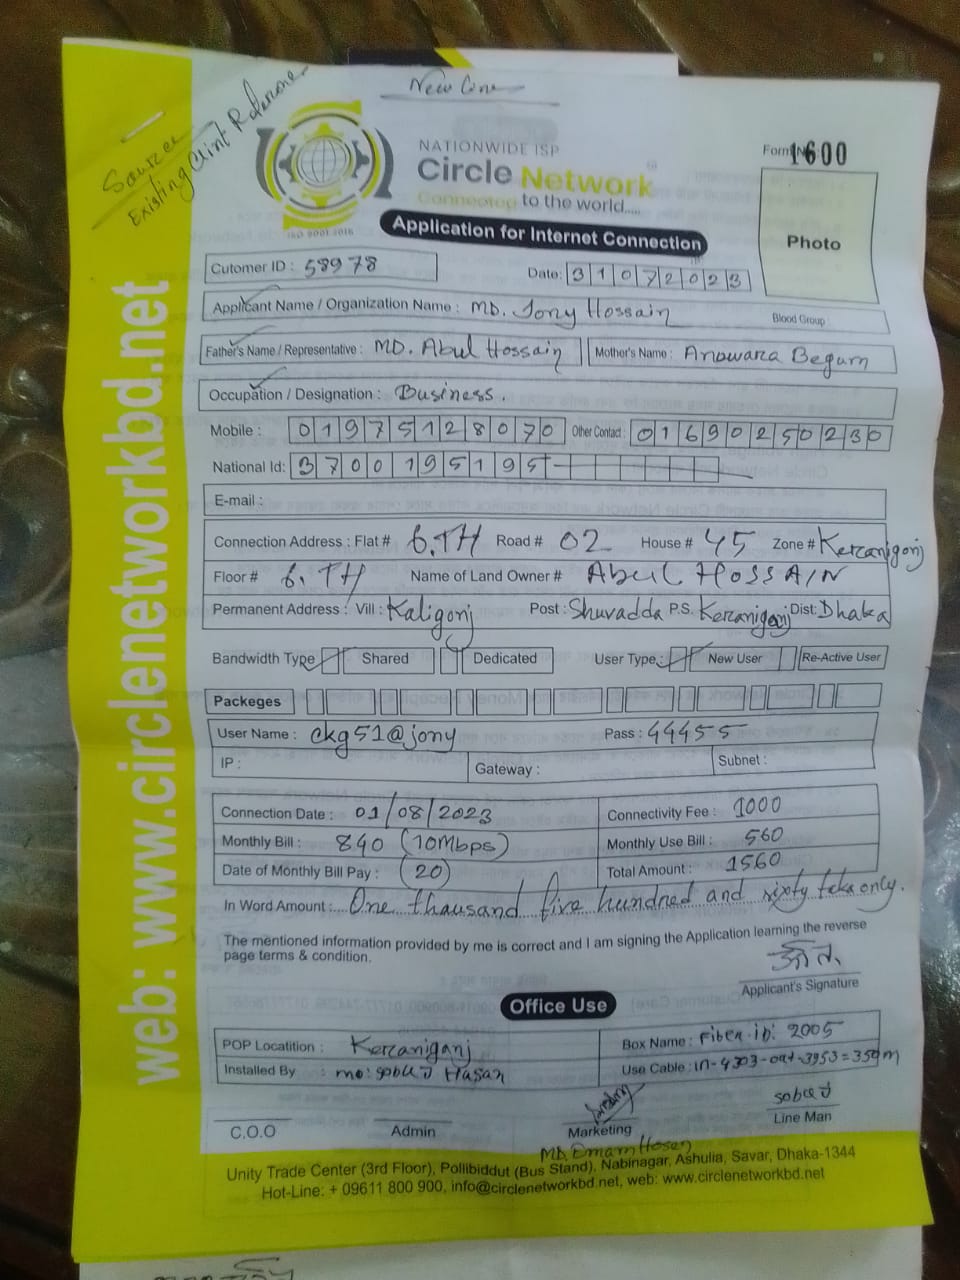 New Line
Source
Existing Clint Referance
NATIONWIDE ISP
Circle Network
Connected to the world.....
ISO 9001:2015
Form No 1600
Photo
Application for Internet Connection
Cutomer ID : 58978 Date: 31072023
Applicant Name / Organization Name : MD. Jony Hossain Blood Group
Father's Name / Representative : MD. Abul Hossain Mother's Name : Anowara Begum
Occupation / Designation : Business.
Mobile : 01975128070 Other Contact : 01690250230
National Id: 3700195195
E-mail :
Connection Address : Flat # 6.TH Road # 02 House # 45 Zone # Keraniganj
Floor # 6.TH Name of Land Owner # Abul HOSSAIN
Permanent Address : Vill : Kaligonj Post : Shuvadda P.S. Keraniganj Dist: Dhaka
Bandwidth Type Shared Dedicated User Type : New User Re-Active User
Packeges
User Name : ckg51@jony Pass : 44455
IP : Gateway : Subnet :
Connection Date : 01/08/2023 Connectivity Fee : 1000
Monthly Bill : 840 (10Mbps) Monthly Use Bill : 560
Date of Monthly Bill Pay : (20) Total Amount : 1560
In Word Amount : One thausand five hundred and sixty taka only.
The mentioned information provided by me is correct and I am signing the Application learning the reverse
page terms & condition.
Applicant's Signature
Office Use
POP Locatition : Keraniganj Box Name : Fiber.iD: 2005
Installed By : mo: sobuj Hasan Use Cable : in-4303-out-3953=350m
sobuj
C.O.O Admin Marketing Line Man
MD. Emam Hosen
Unity Trade Center (3rd Floor), Pollibiddut (Bus Stand), Nabinagar, Ashulia, Savar, Dhaka-1344
Hot-Line: + 09611 800 900, info@circlenetworkbd.net, web: www.circlenetworkbd.net
web: www.circlenetworkbd.net